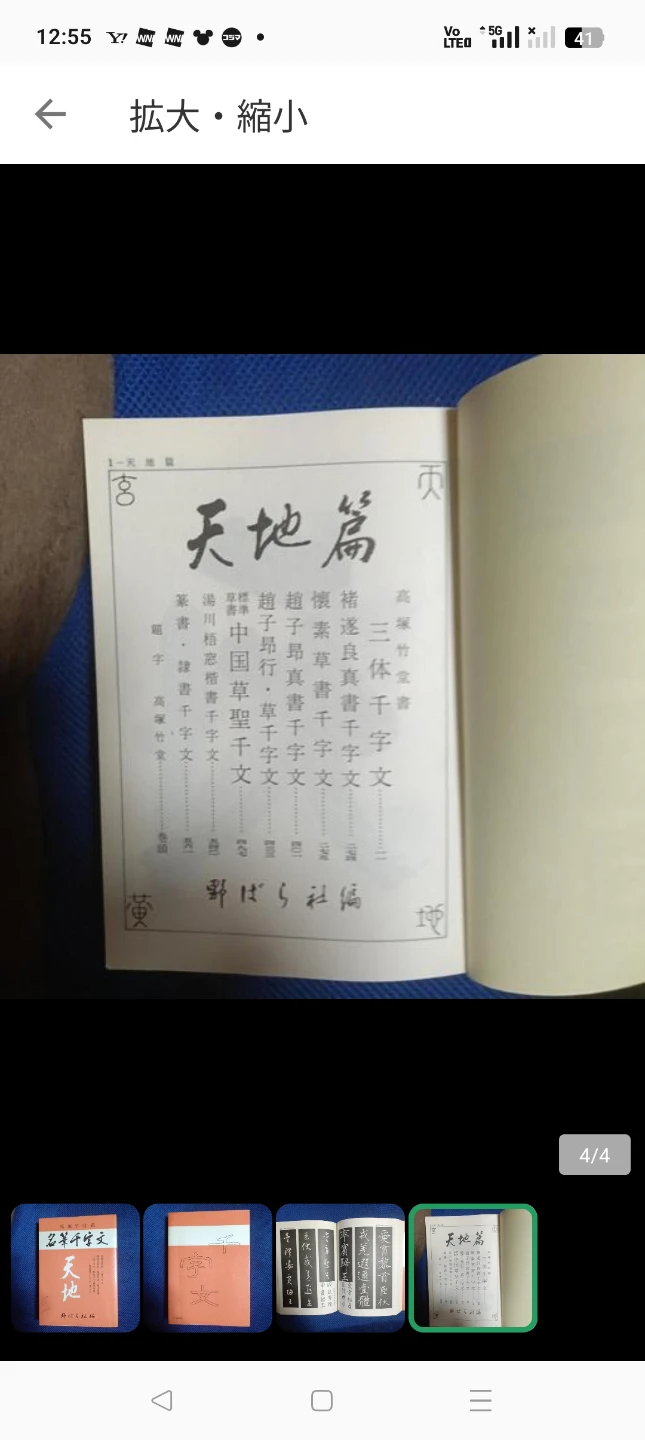 12:55
Vo LTE 5G 41
拡大・縮小
1－天地篇
天
地
玄
黄
天地篇
高塚竹堂書
三体千字文……一一
褚遂良真書千字文
懐素草書千字文
趙子昂真書千字文
趙子昂行・草千字文
標準草書 中国草聖千文
湯川梧窓楷書千字文
篆書・隷書千字文
題字 高塚竹堂
野ばら社編
4/4
名筆千字文
天地